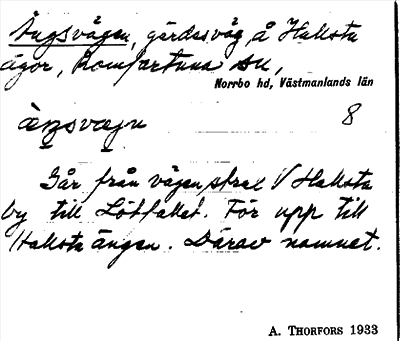 Ängsvägen, gärdesväg å Hallsta
ägor, Romfartuna sn,
Norrbo hd, Västmanlands län
8
Går från vägen strax V Hallsta
by till Lötfallet. För upp till
Hallsta ängen. Därav namnet.
A. THORFORS 1933